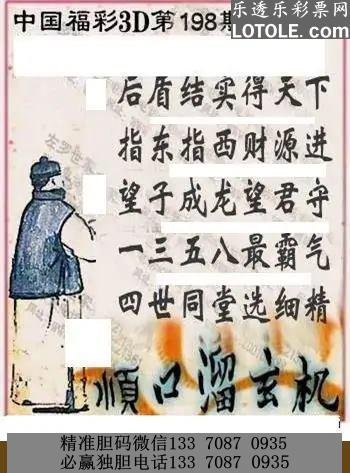 乐透乐彩票网
LOTOLE.COM
中国福彩3D第198期
后盾结实得天下
指东指西财源进
望子成龙望君守
一三五八最霸气
四世同堂选细精
顺口溜玄机
精准胆码微信133 7087 0935
必赢独胆电话133 7087 0935